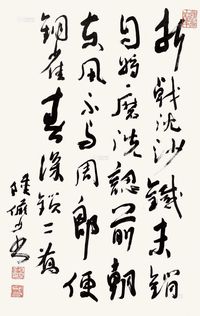 折戟沈沙鐵未銷
自將磨洗認前朝
東風不與周郎便
銅雀春深鎖二喬
陸儼少書